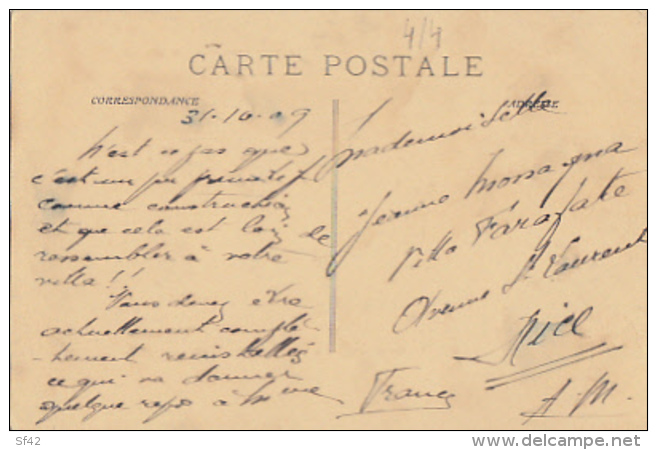 4/4
CARTE POSTALE
CORRESPONDANCE
ADRESSE
31-10-09
N'est ce pas que
c'est un peu primitif
comme construction
et que cela est loin de
ressembler à votre
villa!!
Vous devez être
actuellement complè-
-tement réinstallés
ce qui va donner
quelque repos à Mme
Mademoiselle
Jeanne
Villa
Avenue St Laurent
Nice
France
A.M.
Sf42
delcampe.net